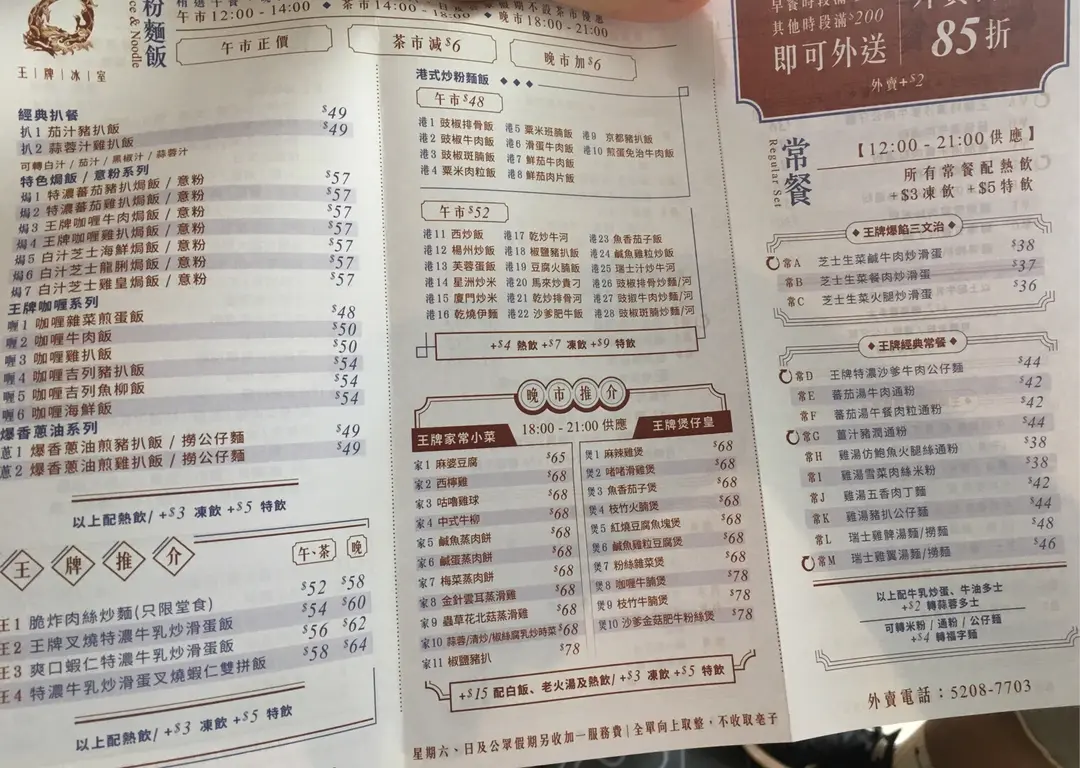 王|牌|冰|室
粉麵飯
Noodle
午市12:00 - 14:00 ◆ 茶市14:00 - 18:00 ◆ 晚市18:00 - 21:00
午市正價
茶市減$6
晚市加$6
經典扒餐
扒1 茄汁豬扒飯 $49
扒2 蒜蓉汁雞扒飯 $49
可轉白汁 / 茄汁 / 黑椒汁 / 蒜蓉汁
特色焗飯 / 意粉系列
焗1 特濃蕃茄豬扒焗飯 / 意粉 $57
焗2 特濃蕃茄雞扒焗飯 / 意粉 $57
焗3 王牌咖喱牛肉焗飯 / 意粉 $57
焗4 王牌咖喱雞扒焗飯 / 意粉 $57
焗5 白汁芝士海鮮焗飯 / 意粉 $57
焗6 白汁芝士龍脷焗飯 / 意粉 $57
焗7 白汁芝士雞皇焗飯 / 意粉 $57
王牌咖喱系列
喱1 咖喱雜菜煎蛋飯 $48
喱2 咖喱牛肉飯 $50
喱3 咖喱雞扒飯 $50
喱4 咖喱吉列豬扒飯 $54
喱5 咖喱吉列魚柳飯 $54
喱6 咖喱海鮮飯 $54
爆香蔥油系列
蔥1 爆香蔥油煎豬扒飯 / 撈公仔麵 $49
蔥2 爆香蔥油煎雞扒飯 / 撈公仔麵 $49
以上配熱飲/ +$3 凍飲 +$5 特飲
王牌推介
午、茶 晚
王1 脆炸肉絲炒麵(只限堂食) $52 $58
王2 王牌叉燒特濃牛乳炒滑蛋飯 $54 $60
王3 爽口蝦仁特濃牛乳炒滑蛋飯 $56 $62
王4 特濃牛乳炒滑蛋叉燒蝦仁雙拼飯 $58 $64
以上配熱飲/ +$3 凍飲 +$5 特飲
港式炒粉麵飯 ◆ ◆ ◆
午市$48
港1 豉椒排骨飯 港5 粟米班腩飯 港9 京都豬扒飯
港2 豉椒牛肉飯 港6 滑蛋牛肉飯 港10 煎蛋免治牛肉飯
港3 豉椒斑腩飯 港7 鮮茄牛肉飯
港4 粟米肉粒飯 港8 鮮茄肉片飯
午市$52
港11 西炒飯 港17 乾炒牛河 港23 魚香茄子飯
港12 楊州炒飯 港18 椒鹽豬扒飯 港24 鹹魚雞粒炒飯
港13 芙蓉蛋飯 港19 豆腐火腩飯 港25 瑞士汁炒牛河
港14 星洲炒米 港20 馬來炒貴刁 港26 豉椒排骨炒麵/河
港15 廈門炒米 港21 乾炒排骨河 港27 豉椒牛肉炒麵/河
港16 乾燒伊麵 港22 沙爹肥牛飯 港28 豉椒斑腩炒麵/河
+$4 熱飲 +$7 凍飲 +$9 特飲
晚市推介
18:00 - 21:00 供應
王牌家常小菜
家1 麻婆豆腐 $65
家2 西檸雞 $68
家3 咕嚕雞球 $68
家4 中式牛柳 $68
家5 鹹魚蒸肉餅 $68
家6 鹹蛋蒸肉餅 $68
家7 梅菜蒸肉餅 $68
家8 金針雲耳蒸滑雞 $68
家9 蟲草花北菇蒸滑雞 $68
家10 蒜蓉/清炒/椒絲腐乳炒時菜 $68
家11 椒鹽豬扒 $78
王牌煲仔皇
煲1 麻辣雞煲 $68
煲2 啫啫滑雞煲 $68
煲3 魚香茄子煲 $68
煲4 枝竹火腩煲 $68
煲5 紅燒豆腐魚塊煲 $68
煲6 鹹魚雞粒豆腐煲 $68
煲7 粉絲雜菜煲 $68
煲8 咖喱牛腩煲 $78
煲9 枝竹牛腩煲 $78
煲10 沙爹金菇肥牛粉絲煲 $78
+$15 配白飯、老火湯及熱飲/ +$3 凍飲 +$5 特飲
星期六、日及公眾假期另收加一服務費 | 全單向上取整，不收取毫子
其他時段滿$200
即可外送
85折
外賣+$2
常餐
Regular Set
【12:00 - 21:00供應】
所有常餐配熱飲
+$3凍飲 +$5特飲
◆ 王牌爆餡三文治 ◆
常A 芝士生菜鹹牛肉炒滑蛋 $38
常B 芝士生菜餐肉炒滑蛋 $37
常C 芝士生菜火腿炒滑蛋 $36
◆ 王牌經典常餐 ◆
常D 王牌特濃沙爹牛肉公仔麵 $44
常E 蕃茄湯牛肉通粉 $42
常F 蕃茄湯午餐肉粒通粉 $42
常G 薑汁豬潤通粉 $44
常H 雞湯仿鮑魚火腿絲通粉 $38
常I 雞湯雪菜肉絲米粉 $38
常J 雞湯五香肉丁麵 $42
常K 雞湯豬扒公仔麵 $44
常L 瑞士雞髀湯麵/撈麵 $48
常M 瑞士雞翼湯麵/撈麵 $46
以上配牛乳炒蛋、牛油多士
+$2 轉蒜蓉多士
可轉米粉 / 通粉 / 公仔麵
+$4 轉福字麵
外賣電話：5208-7703